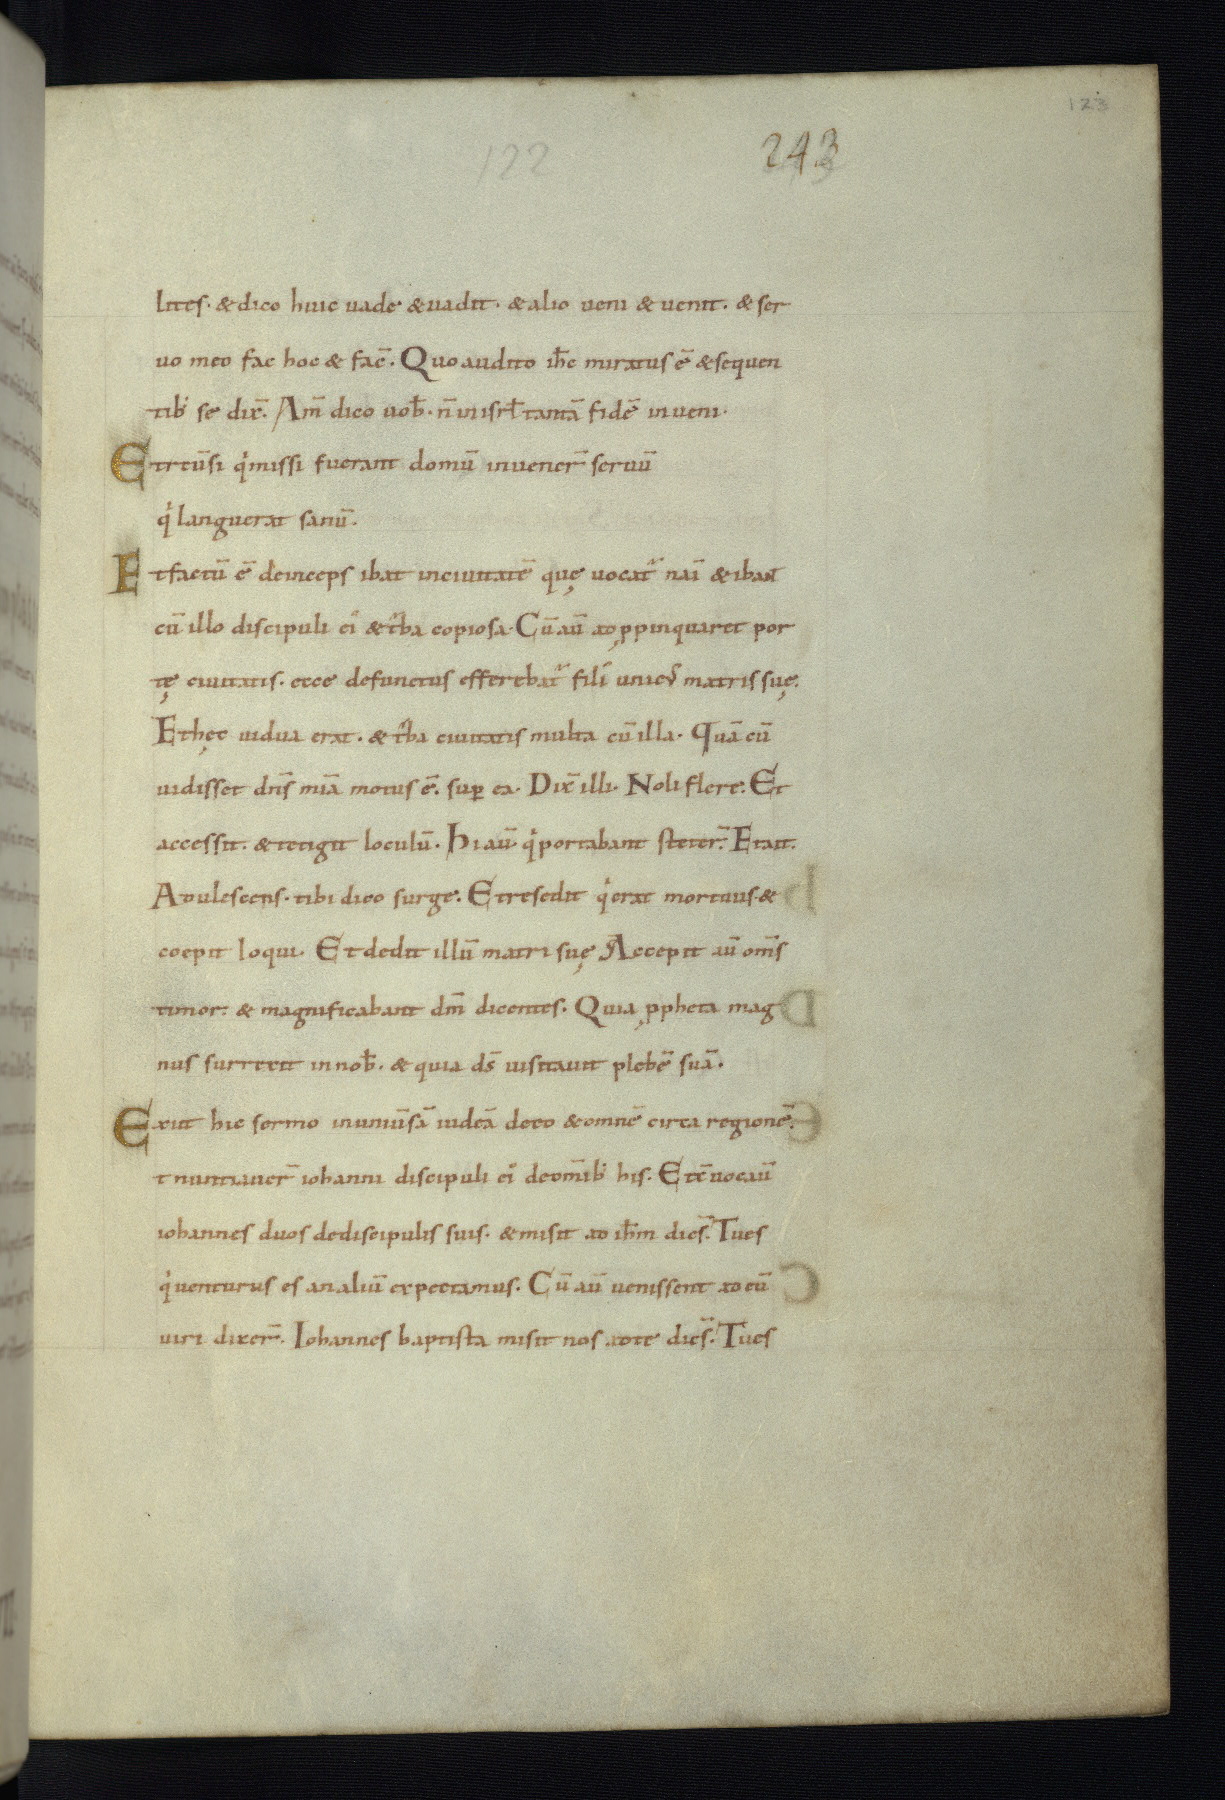 123
122
243
lites· & dico huic uade & uadit· & alio ueni & uenit· & ser
uo meo fac hoc & fac̄· Quo audito ih̄c miratus ē & sequen
tib; se dix̄· Am̄ dico uob̄· n̄ in isrl̄ tantā fidē inueni·
Et reūsi qͥ missi fuerant domū inuener̄ seruū
qͥ languerat sanū·
Et factū ē deinceps ibat in ciuitatē quę uocat̄ naī & ibant
cū illo discipuli ei᾽ & tͥba copiosa· Cū aū adꝓpinquaret por
tę ciuitatis· ecce defunctus efferebat̄ fili᾽ unic᾽ matris suę·
Et hęc uidua erat· & tͥba ciuitatis multa cū illa· Quā cū
uidisset dn̄s mīa motus ē· suꝑ ea· Dix̄ illi· Noli flere· Et
accessit· & tetigit loculū· Hi aū qͥ portabant steter̄· Et ait·
Adulescens· tibi dico surge· Et resedit qͥ erat mortuus· &
coepit loqui· Et dedit illū matri suę Accepit aū om̄s
timor· & magnificabant dm̄ dicentes· Quia ꝓpheta mag
nus surrexit in nob̄· & quia ds̄ uisitauit plebē suā·
Exiit hic sermo in uniūsā iudeā de eo & omnē circa regionē·
t nuntiauer̄ iohanni discipuli ei᾽ de om̄ib; his· Et c̄uocauī
iohannes duos de discipulis suis· & misit ad ih̄m dic̄s· Tu es
qͥ uenturus es an aliū expectamus· Cū aū uenissent ad eū
uiri dixer̄· Iohannes baptista misit nos ad te dic̄s· Tu es